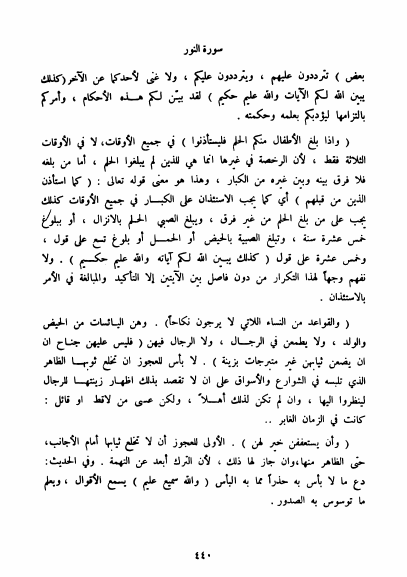 سورة النور
بعض ) تترددون عليهم ، ويترددون عليكم ، ولا غنى لأحدكما عن الآخر (كذلك
يبين الله لكم الآيات والله عليم حكيم ) لقد بيّن لكم هذه الأحكام ، وأمركم
بالتزامها ليؤدبكم بعلمه وحكمته .
( واذا بلغ الأطفال منكم الحلم فليستأذنوا ) في جميع الأوقات، لا في الأوقات
الثلاثة فقط ، لأن الرخصة في غيرها انما هي للذين لم يبلغوا الحلم ، أما من بلغه
فلا فرق بينه وبين غيره من الكبار ، وهذا هو معنى قوله تعالى : ( كما استأذن
الذين من قبلهم ) أي كما يجب الاستئذان على الكبار في جميع الأوقات كذلك
يجب على من بلغ الحلم من غير فرق ، ويبلغ الصبي الحلم بالانزال ، أو ببلوغ
خمس عشرة سنة ، وتبلغ الصبية بالحيض أو الحمل أو بلوغ تسع على قول ،
وخمس عشرة على قول ( كذلك يبين الله لكم آياته والله عليم حكيم ) . ولا
نفهم وجهاً لهذا التكرار من دون فاصل بين الآيتين إلا التأكيد والمبالغة في الأمر
بالاستئذان .
( والقواعد من النساء اللاتي لا يرجون نكاحاً) . وهن اليائسات من الحيض
والولد ، ولا يطمعن في الرجال ، ولا الرجال فيهن ( فليس عليهن جناح ان
ان يضعن ثيابهن غير متبرجات بزينة ) . لا بأس للعجوز ان تخلع ثوبها الظاهر
الذي تلبسه في الشوارع والأسواق على ان لا تقصد بذلك اظهار زينتها للرجال
لينظروا اليها ، وان لم تكن لذلك أهلاً ، ولكن عسى من لاقط او قائل :
كانت في الزمان الغابر ..
( وأن يستعففن خير لهن ) . الأولى للعجوز أن لا تخلع ثيابها أمام الأجانب،
حتى الظاهر منها،وان جاز لها ذلك ، لأن الترك أبعد عن التهمة . وفي الحديث:
دع ما لا بأس به حذراً مما به البأس ( والله سميع عليم ) يسمع الأقوال ، ويعلم
ما توسوس به الصدور .
٤٤٠